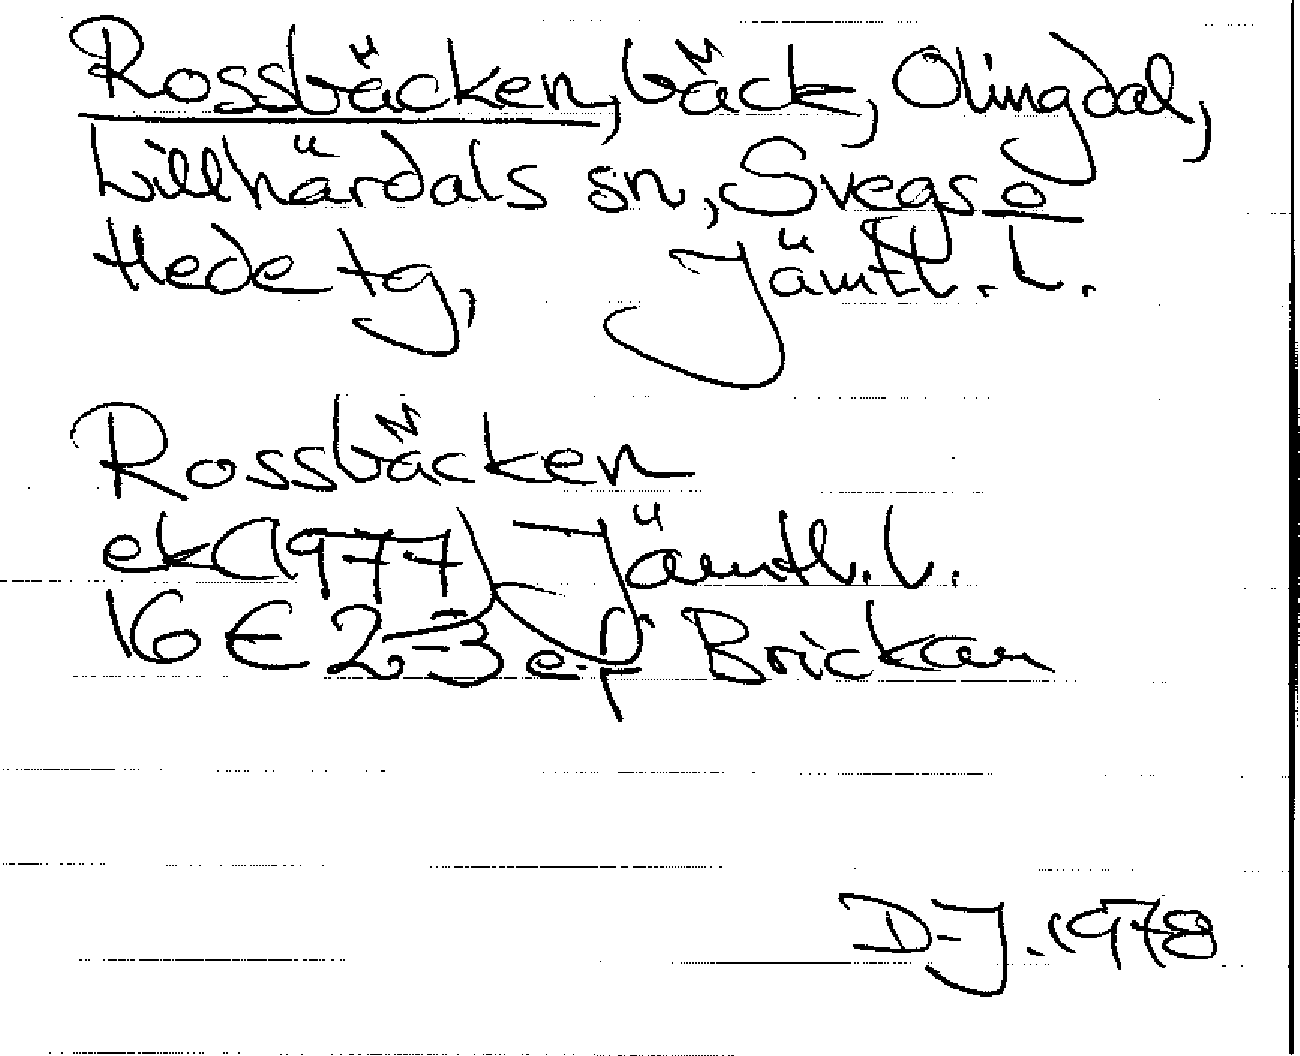 Rossbäcken, bäck, Olingdal,
Lillhärdals sn, Svegs o
Hede tg, Jämtl. L.
Rossbäcken
ek (1977) Jämtl. l.
16 E 2-3 e-f Brickan
D-J. 1978